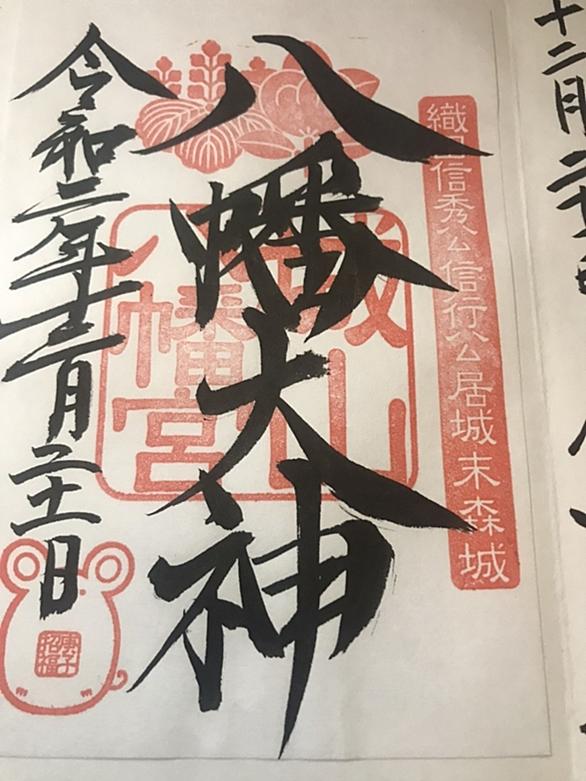 十二月
織田信秀公信行公居城末森城
八幡大神
城山
八幡宮
令和二年十二月二十一日
庚子
招福